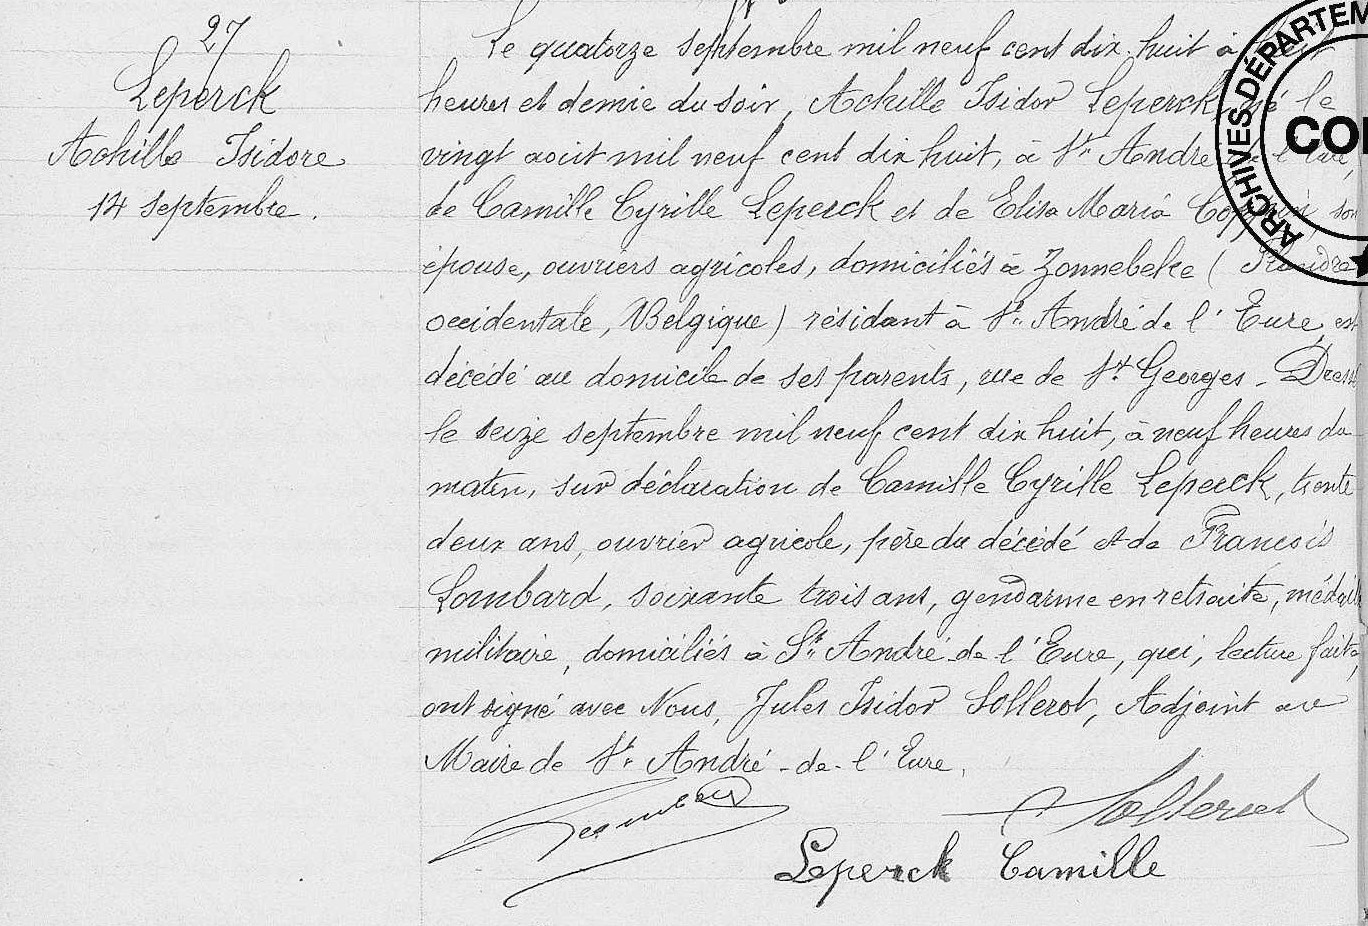 27
Leperck
Achille Isidore
14 septembre.
Le quatorze septembre mil neuf cent dix-huit à
heures et demie du soir, Achille Isidor Leperck, né le
vingt août mil neuf cent dix huit, à St André de l'Eure,
de Camille Cyrille Leperck et de Elisa Maria Coppin, son
épouse, ouvriers agricoles, domiciliés à Zonnebeke (Flandre
occidentale, Belgique) résidant à St André de l'Eure, est
décédé au domicile de ses parents, rue de St Georges - Dressé
le seize septembre mil neuf cent dix huit, à neuf heures du
matin, sur déclaration de Camille Cyrille Leperck, trente
deux ans, ouvrier agricole, père du décédé et de François
Lombard, soixante trois ans, gendarme en retraite, médaille
militaire, domiciliés à St André de l'Eure, qui, lecture faite,
ont signé avec Nous, Jules Isidor Sollerot, Adjoint au
Maire de St André-de-l'Eure.
Sollerot
Leperck Camille
ARCHIVES DÉPARTEM
CO